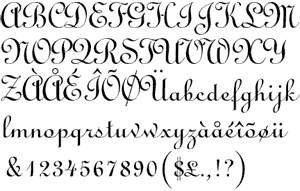 ABCDEFGHIJKLM
NOPQRSTUVWXY
ZÀÅÉÎÕØÜabcdefghijk
lmnopqrstuvwxyzàåéîõøü
&1234567890($£.,!?)